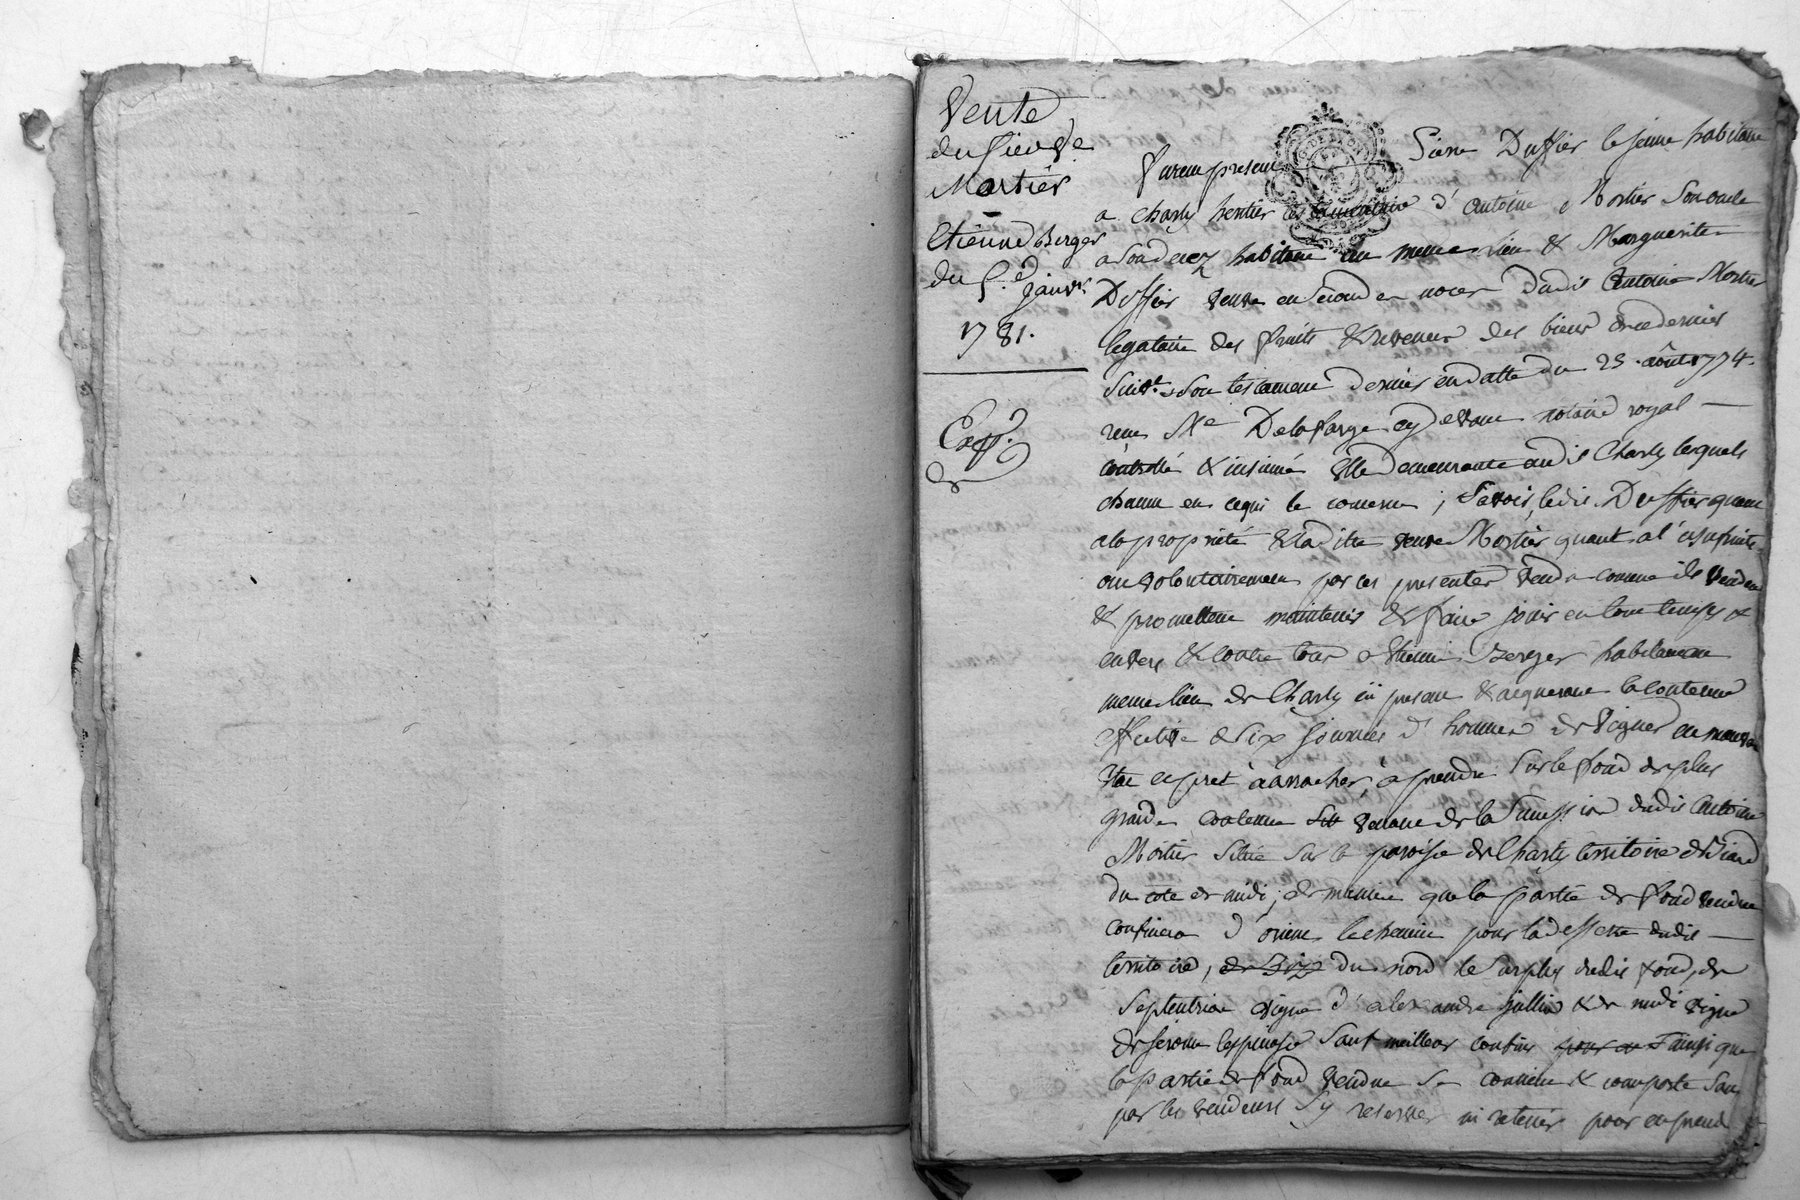 Vente
du Sieur
Mortier
Etienne Berger
du 5e janvr
1781.
Exp.
Furent presens Sierre Duffier le jeune habitant
a Charly heritier testamentaire d'antoine Mortier son oncle
a son decez habitant du meme lieu & Marguerite
Duffier veuve en seconde noces dudit Antoine Mortier
legataire des fruits & revenus des biens de ce dernier
suivt son testament dernier en datte du 23 août 1774.
reçu Me Delafarge cy devant notaire royal
controllé & insinué elle demeurante audit Charly lesquels
chacun en ce qui le concerne, savoir, ledit Duffier quant
a la propriété & ladite veuve Mortier quant a l'usufruit
ont volontairement par ces presentes vendu comme ils vendent
& promettent maintenir & faire jouir en tout temps &
envers & contre tous a etienne Berger habitant au
meme lieu de Charly ici present & acquerant la contenue
effective de six journées d'homme de vignes en mauvais
etat et pret à arracher, a prendre sur le fond de plus
grande contenue venant de la succession dudit Antoine
Mortier situé sur la paroisse de Charly territoire de
du cote de midi, de maniere que la partie de fond vendue
confinera d'orient le chemin pour la desserte dudit
territoire, du nord le surplus dudit fond, de
septentrion vigne d'alexandre jullien & de midi vigne
de jerome lespinasse sauf meilleurs confins ainsi que
la partie de fond vendue se contient & comporte sans
par les vendeurs s'y reserver ni retenir pour en prend